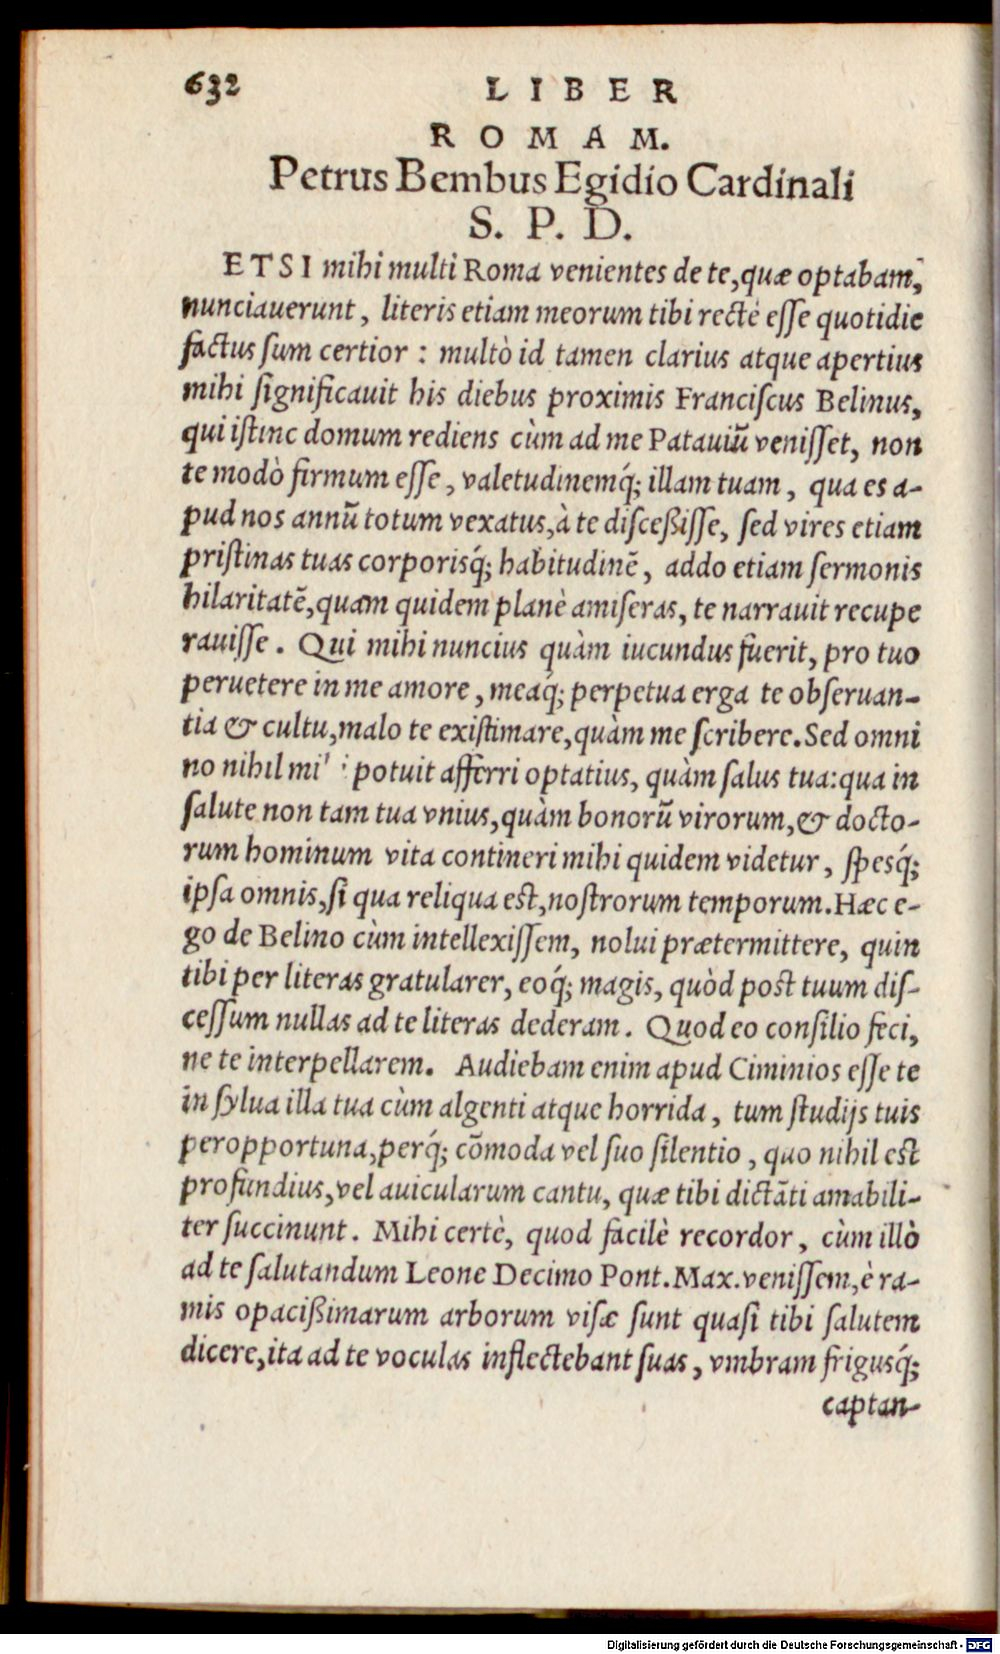 632 LIBER
ROMAM.
Petrus Bembus Egidio Cardinali
S. P. D.
ETSI mihi multi Roma venientes de te, quæ optabam,
nunciauerunt, literis etiam meorum tibi rectè eſſe quotidie
factus ſum certior: multò id tamen clarius atque apertius
mihi ſignificauit his diebus proximis Franciſcus Belinus,
qui iſtinc domum rediens cùm ad me Patauiũ veniſſet, non
te modò firmum eſſe, valetudinemq́; illam tuam, qua es a-
pud nos annũ totum vexatus, à te diſceßiſſe, ſed vires etiam
priſtinas tuas corporisq́; habitudinẽ, addo etiam ſermonis
hilaritatẽ, quam quidem planè amiſeras, te narrauit recupe
rauiſſe. Qui mihi nuncius quàm iucundus fuerit, pro tuo
peruetere in me amore, meaq́; perpetua erga te obſeruan-
tia & cultu, malo te exiſtimare, quàm me ſcribere. Sed omni
no nihil potuit afferri optatius, quàm ſalus tua: qua in
ſalute non tam tua vnius, quàm bonorũ virorum, & docto-
rum hominum vita contineri mihi quidem videtur, ſpesq́;
ipſa omnis, ſi qua reliqua eſt, noſtrorum temporum. Hæc e-
go de Belino cùm intellexiſſem, nolui prætermittere, quin
tibi per literas gratularer, eoq́; magis, quòd poſt tuum diſ-
ceſſum nullas ad te literas dederam. Quod eo conſilio feci,
ne te interpellarem. Audiebam enim apud Ciminios eſſe te
in ſylua illa tua cùm algenti atque horrida, tum ſtudijs tuis
peropportuna, perq́; cõmoda vel ſuo ſilentio, quo nihil eſt
profundius, vel auicularum cantu, quæ tibi dictãti amabili-
ter ſuccinunt. Mihi certè, quod facilè recordor, cùm illò
ad te ſalutandum Leone Decimo Pont. Max. veniſſem, è ra-
mis opacißimarum arborum viſæ ſunt quaſi tibi ſalutem
dicere, ita ad te voculas inflectebant ſuas, vmbram frigusq́;
captan-
Digitalisierung gefördert durch die Deutsche Forschungsgemeinschaft - DFG